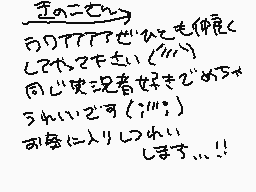 きのこさん
ウワアアアアぜひとも仲良く
してやって下さい(´''')
同じ実況者好きでめちゃ
うれいいです(;''';)
お気に入りしつれい
します...!!